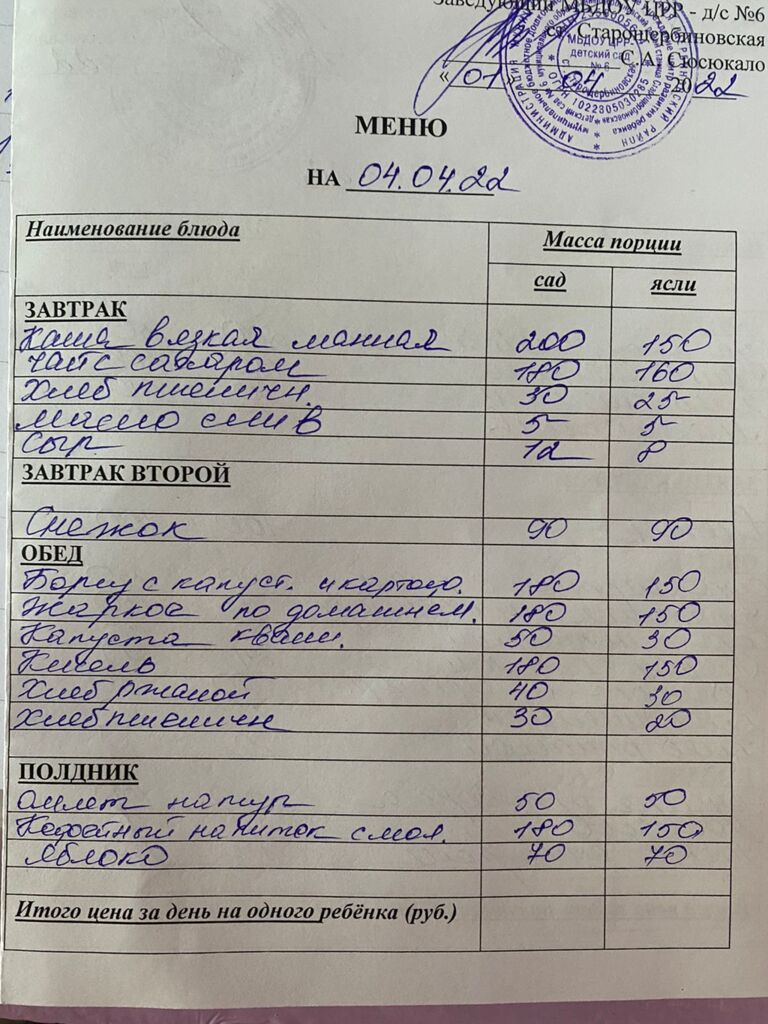 Заведующий МБДОУ ЦРР - д/с №6
ст. Старощербиновская
С.А. Сюсюкало
« 01 04 2022
МБДОУ ЦРР
детский сад
№ 6
АДМИНИСТРАЦИЯ
РАЙОН
ОГРН 1022305030285
МЕНЮ
НА 04.04.22
Наименование блюда Масса порции
сад ясли
ЗАВТРАК
Каша вязкая манная 200 150
чай с сахаром 180 160
Хлеб пшеничн. 30 25
масло слив 5 5
сыр 12 8
ЗАВТРАК ВТОРОЙ
Снежок 90 90
ОБЕД
Борщ с капуст. и картоф. 180 150
Жаркое по домашнем. 180 150
Капуста кваш. 50 30
Кисель 180 150
Хлеб ржаной 40 30
Хлеб пшеничн 30 20
ПОЛДНИК
Омлет натур 50 50
Кофейный напиток с мол. 180 150
Яблоко 70 70
Итого цена за день на одного ребёнка (руб.)